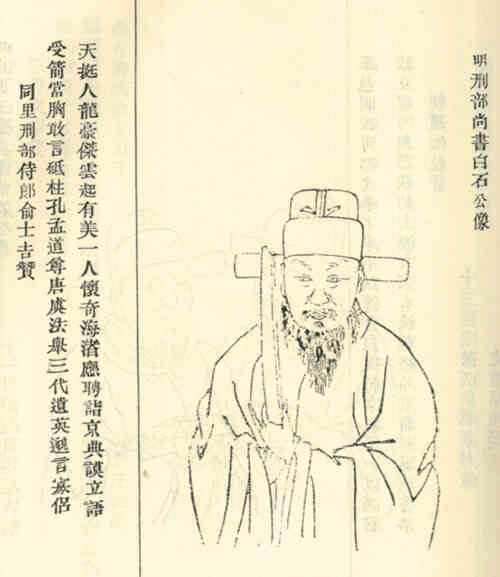 明刑部尚書白石公像
天挺人龍豪傑雲起有美一人懷奇海渚應聘詣京典謨立語
受箭當胸敢言砥柱孔孟道尊唐虞法舉三代遺英遯言寡侶
同里刑部侍郎俞士吉贊